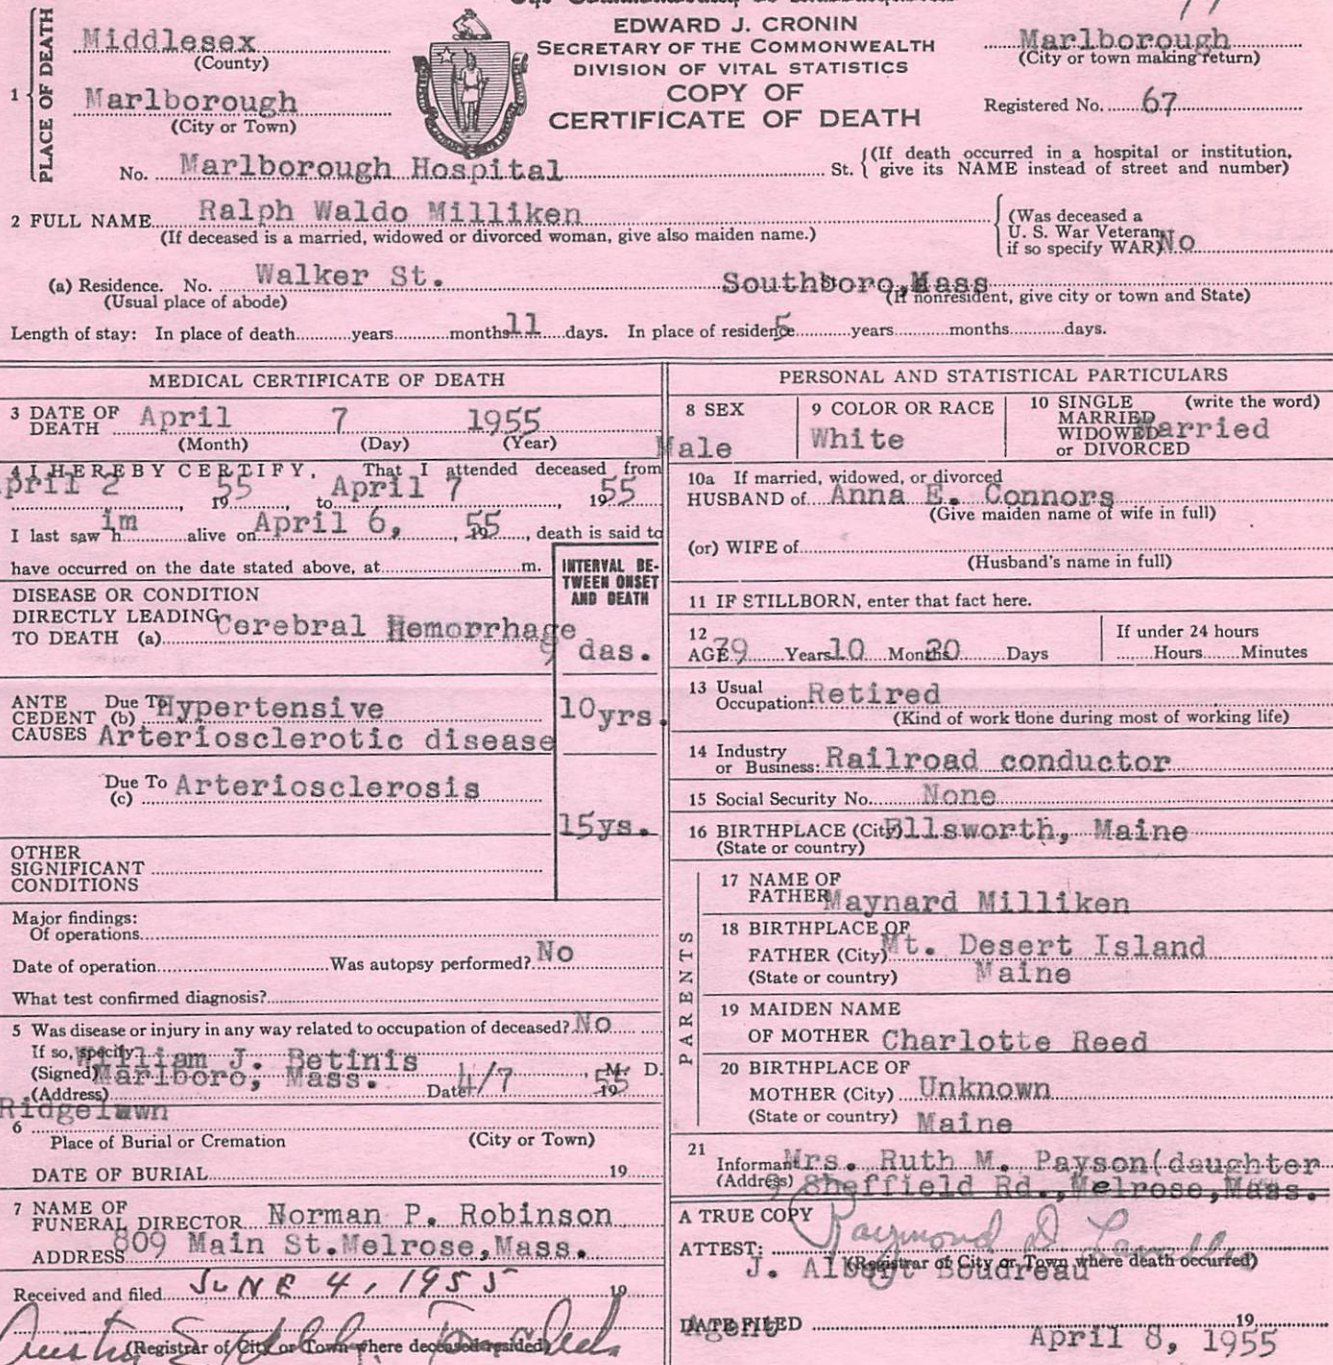 EDWARD J. CRONIN
SECRETARY OF THE COMMONWEALTH
DIVISION OF VITAL STATISTICS
COPY OF
CERTIFICATE OF DEATH
1 PLACE OF DEATH
Middlesex
(County)
Marlborough
(City or Town)
No. Marlborough Hospital St. {(If death occurred in a hospital or institution, give its NAME instead of street and number)
Marlborough
(City or town making return)
Registered No. 67
2 FULL NAME Ralph Waldo Milliken
(If deceased is a married, widowed or divorced woman, give also maiden name.)
(Was deceased a
U. S. War Veteran,
if so specify WAR) No
(a) Residence. No. Walker St. Southboro, Mass
(Usual place of abode) (If nonresident, give city or town and State)
Length of stay: In place of death years months 11 days. In place of residence 5 years months days.
MEDICAL CERTIFICATE OF DEATH
3 DATE OF DEATH April 7 1955
(Month) (Day) (Year)
4 I HEREBY CERTIFY, That I attended deceased from
April 2, 19 55 to April 7, 19 55
I last saw h im alive on April 6, 19 55, death is said to
have occurred on the date stated above, at m.
INTERVAL BETWEEN ONSET AND DEATH
DISEASE OR CONDITION
DIRECTLY LEADING
TO DEATH (a) Cerebral Hemorrhage 9 das.
ANTECEDENT CAUSES Due To (b) Hypertensive 10yrs.
Arteriosclerotic disease
Due To (c) Arteriosclerosis
15ys.
OTHER
SIGNIFICANT
CONDITIONS
Major findings:
Of operations
Date of operation Was autopsy performed? No
What test confirmed diagnosis?
5 Was disease or injury in any way related to occupation of deceased? No
If so, specify
(Signed) William J. Betinis, M. D.
(Address) Marlboro, Mass. Date 4/7 19 55
6 Ridgelawn
Place of Burial or Cremation (City or Town)
DATE OF BURIAL 19
7 NAME OF
FUNERAL DIRECTOR Norman P. Robinson
ADDRESS 809 Main St. Melrose, Mass.
Received and filed JUNE 4, 1955 19
(Registrar of City or Town where deceased resided)
PERSONAL AND STATISTICAL PARTICULARS
8 SEX Male
9 COLOR OR RACE White
10 SINGLE MARRIED WIDOWED or DIVORCED (write the word) Married
10a If married, widowed, or divorced
HUSBAND of Anna E. Connors
(Give maiden name of wife in full)
(or) WIFE of
(Husband's name in full)
11 IF STILLBORN, enter that fact here.
12 AGE 79 Years 10 Months 20 Days
If under 24 hours
Hours Minutes
13 Usual Occupation: Retired
(Kind of work done during most of working life)
14 Industry or Business: Railroad conductor
15 Social Security No. None
16 BIRTHPLACE (City) Ellsworth, Maine
(State or country)
PARENTS
17 NAME OF
FATHER Maynard Milliken
18 BIRTHPLACE OF
FATHER (City) Mt. Desert Island
(State or country) Maine
19 MAIDEN NAME
OF MOTHER Charlotte Reed
20 BIRTHPLACE OF
MOTHER (City) Unknown
(State or country) Maine
21 Informant Mrs. Ruth M. Payson(daughter
(Address) Sheffield Rd., Melrose, Mass.
A TRUE COPY
ATTEST: Raymond D.
J. Albert Boudreau
(Registrar of City or Town where death occurred)
Agent
DATE FILED April 8, 1955 19